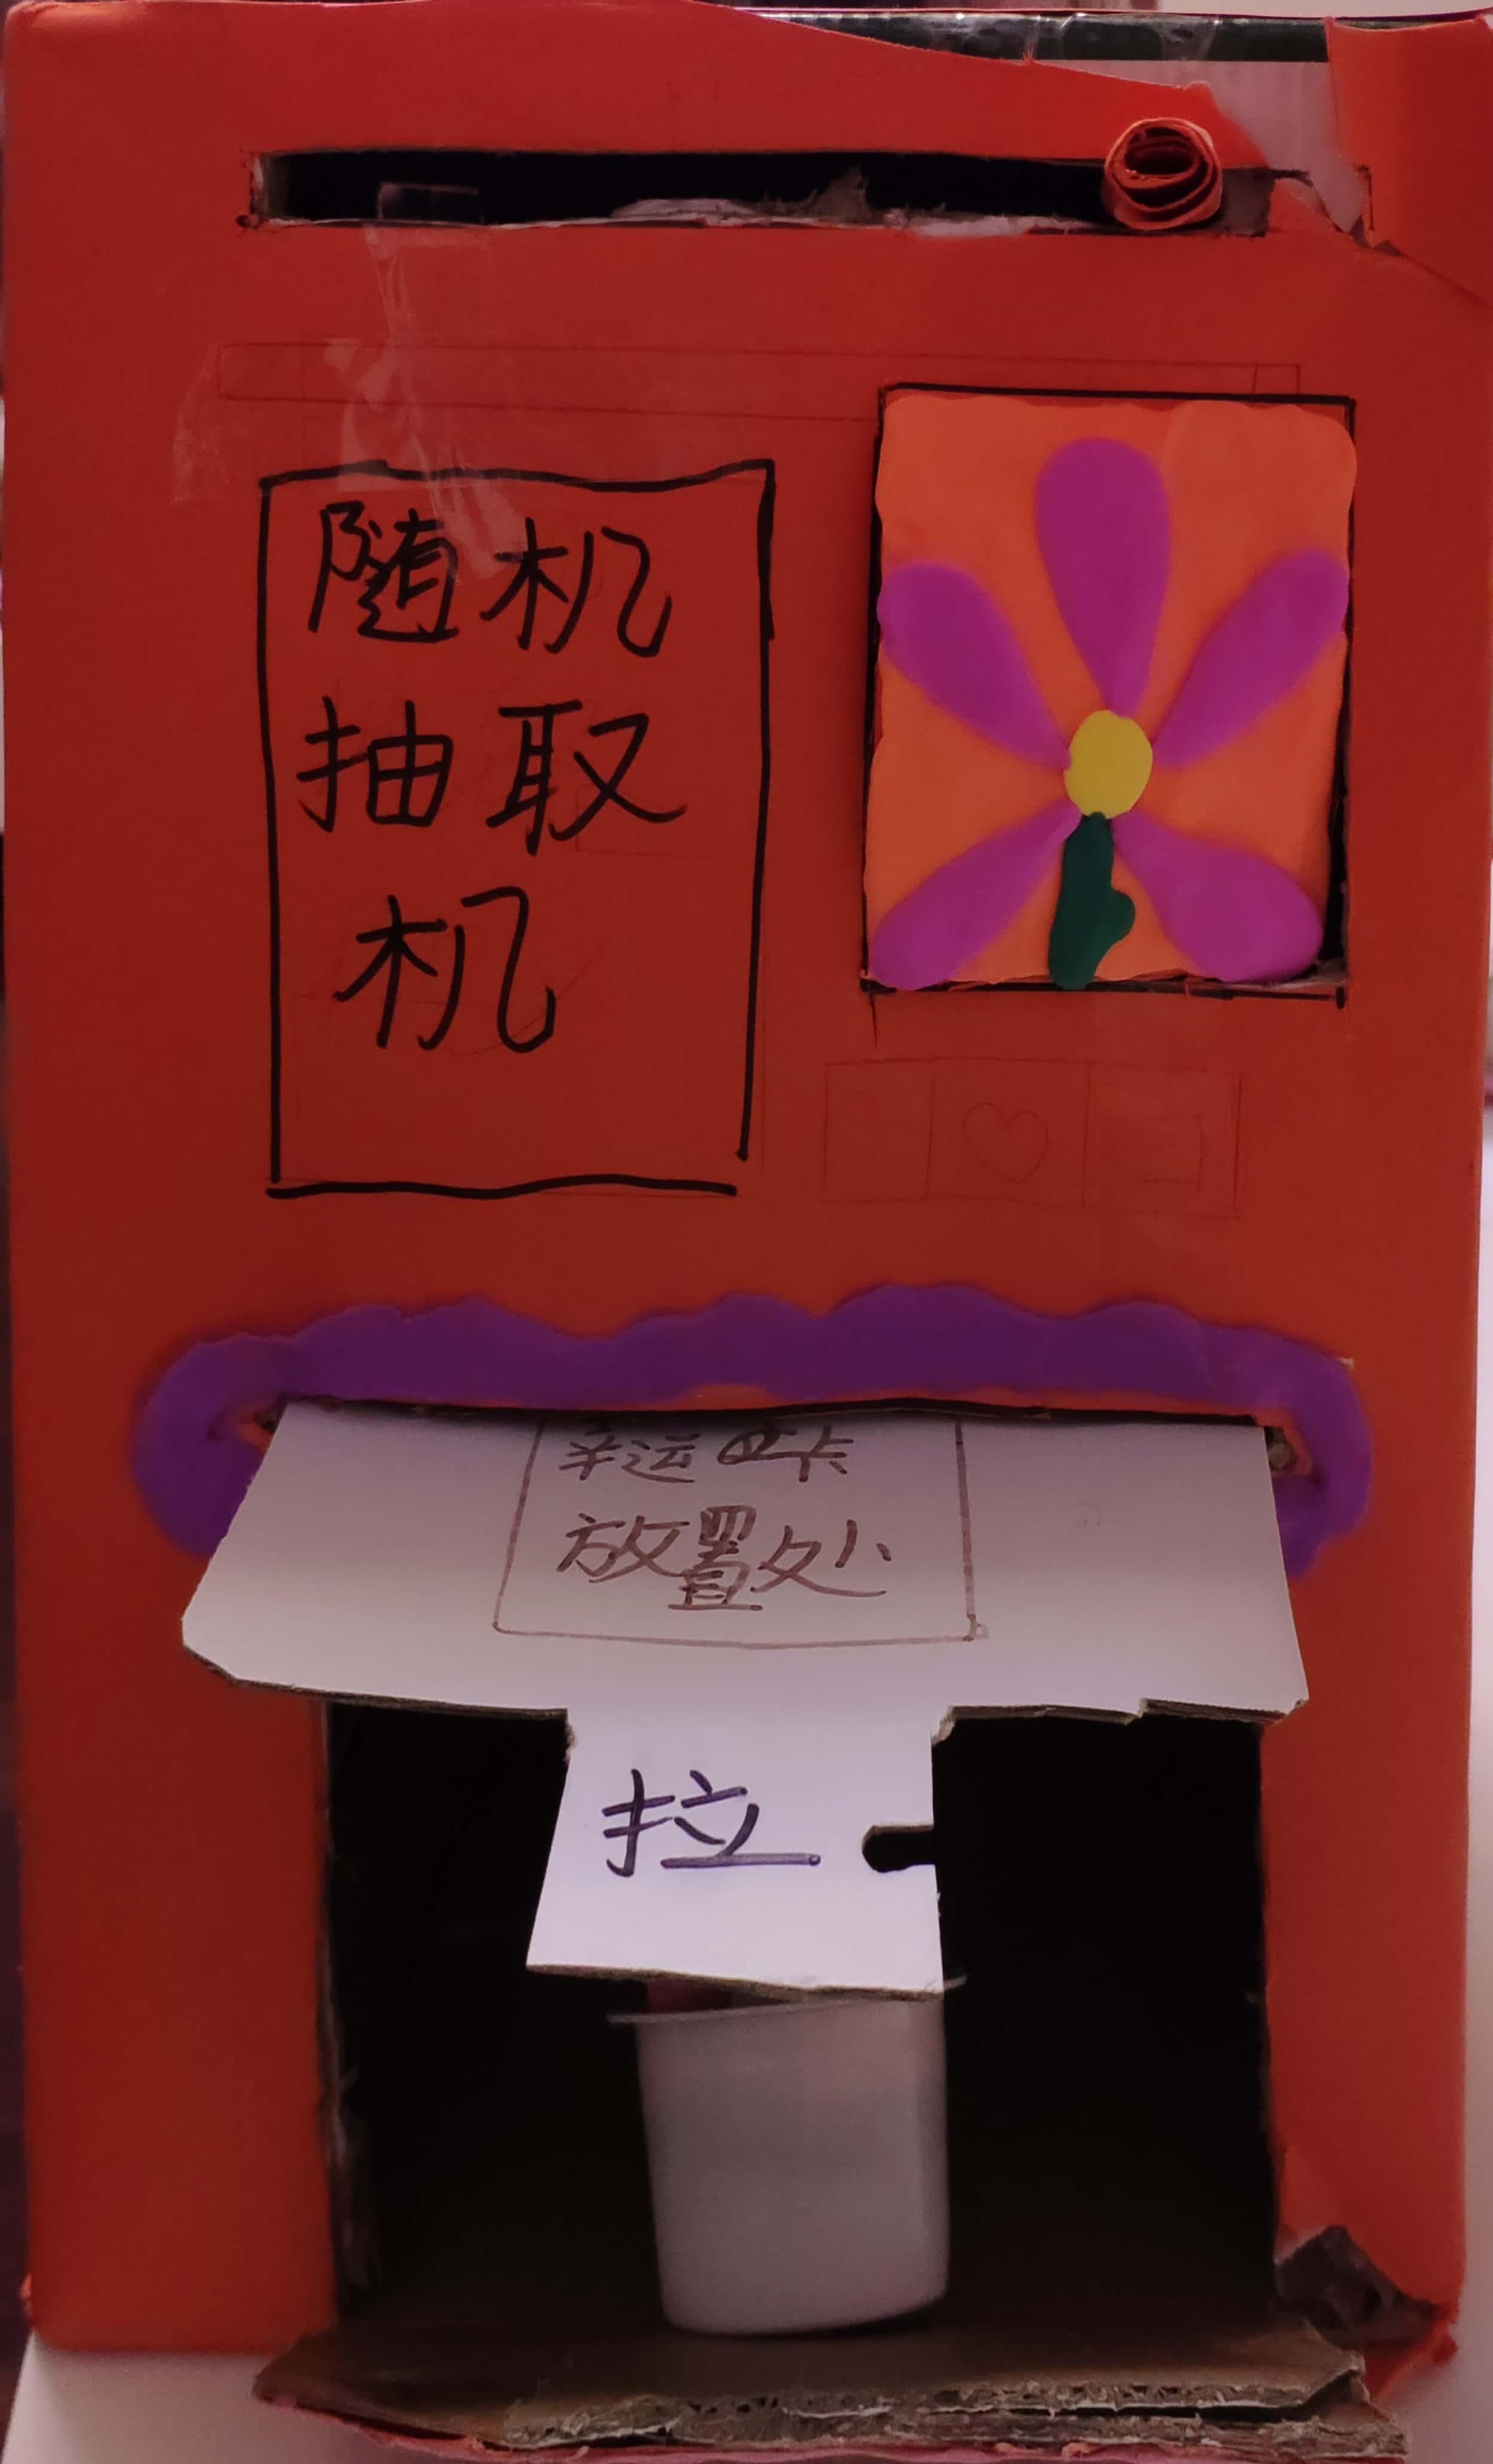 随机
抽取
机
幸运卡
放置处
拉